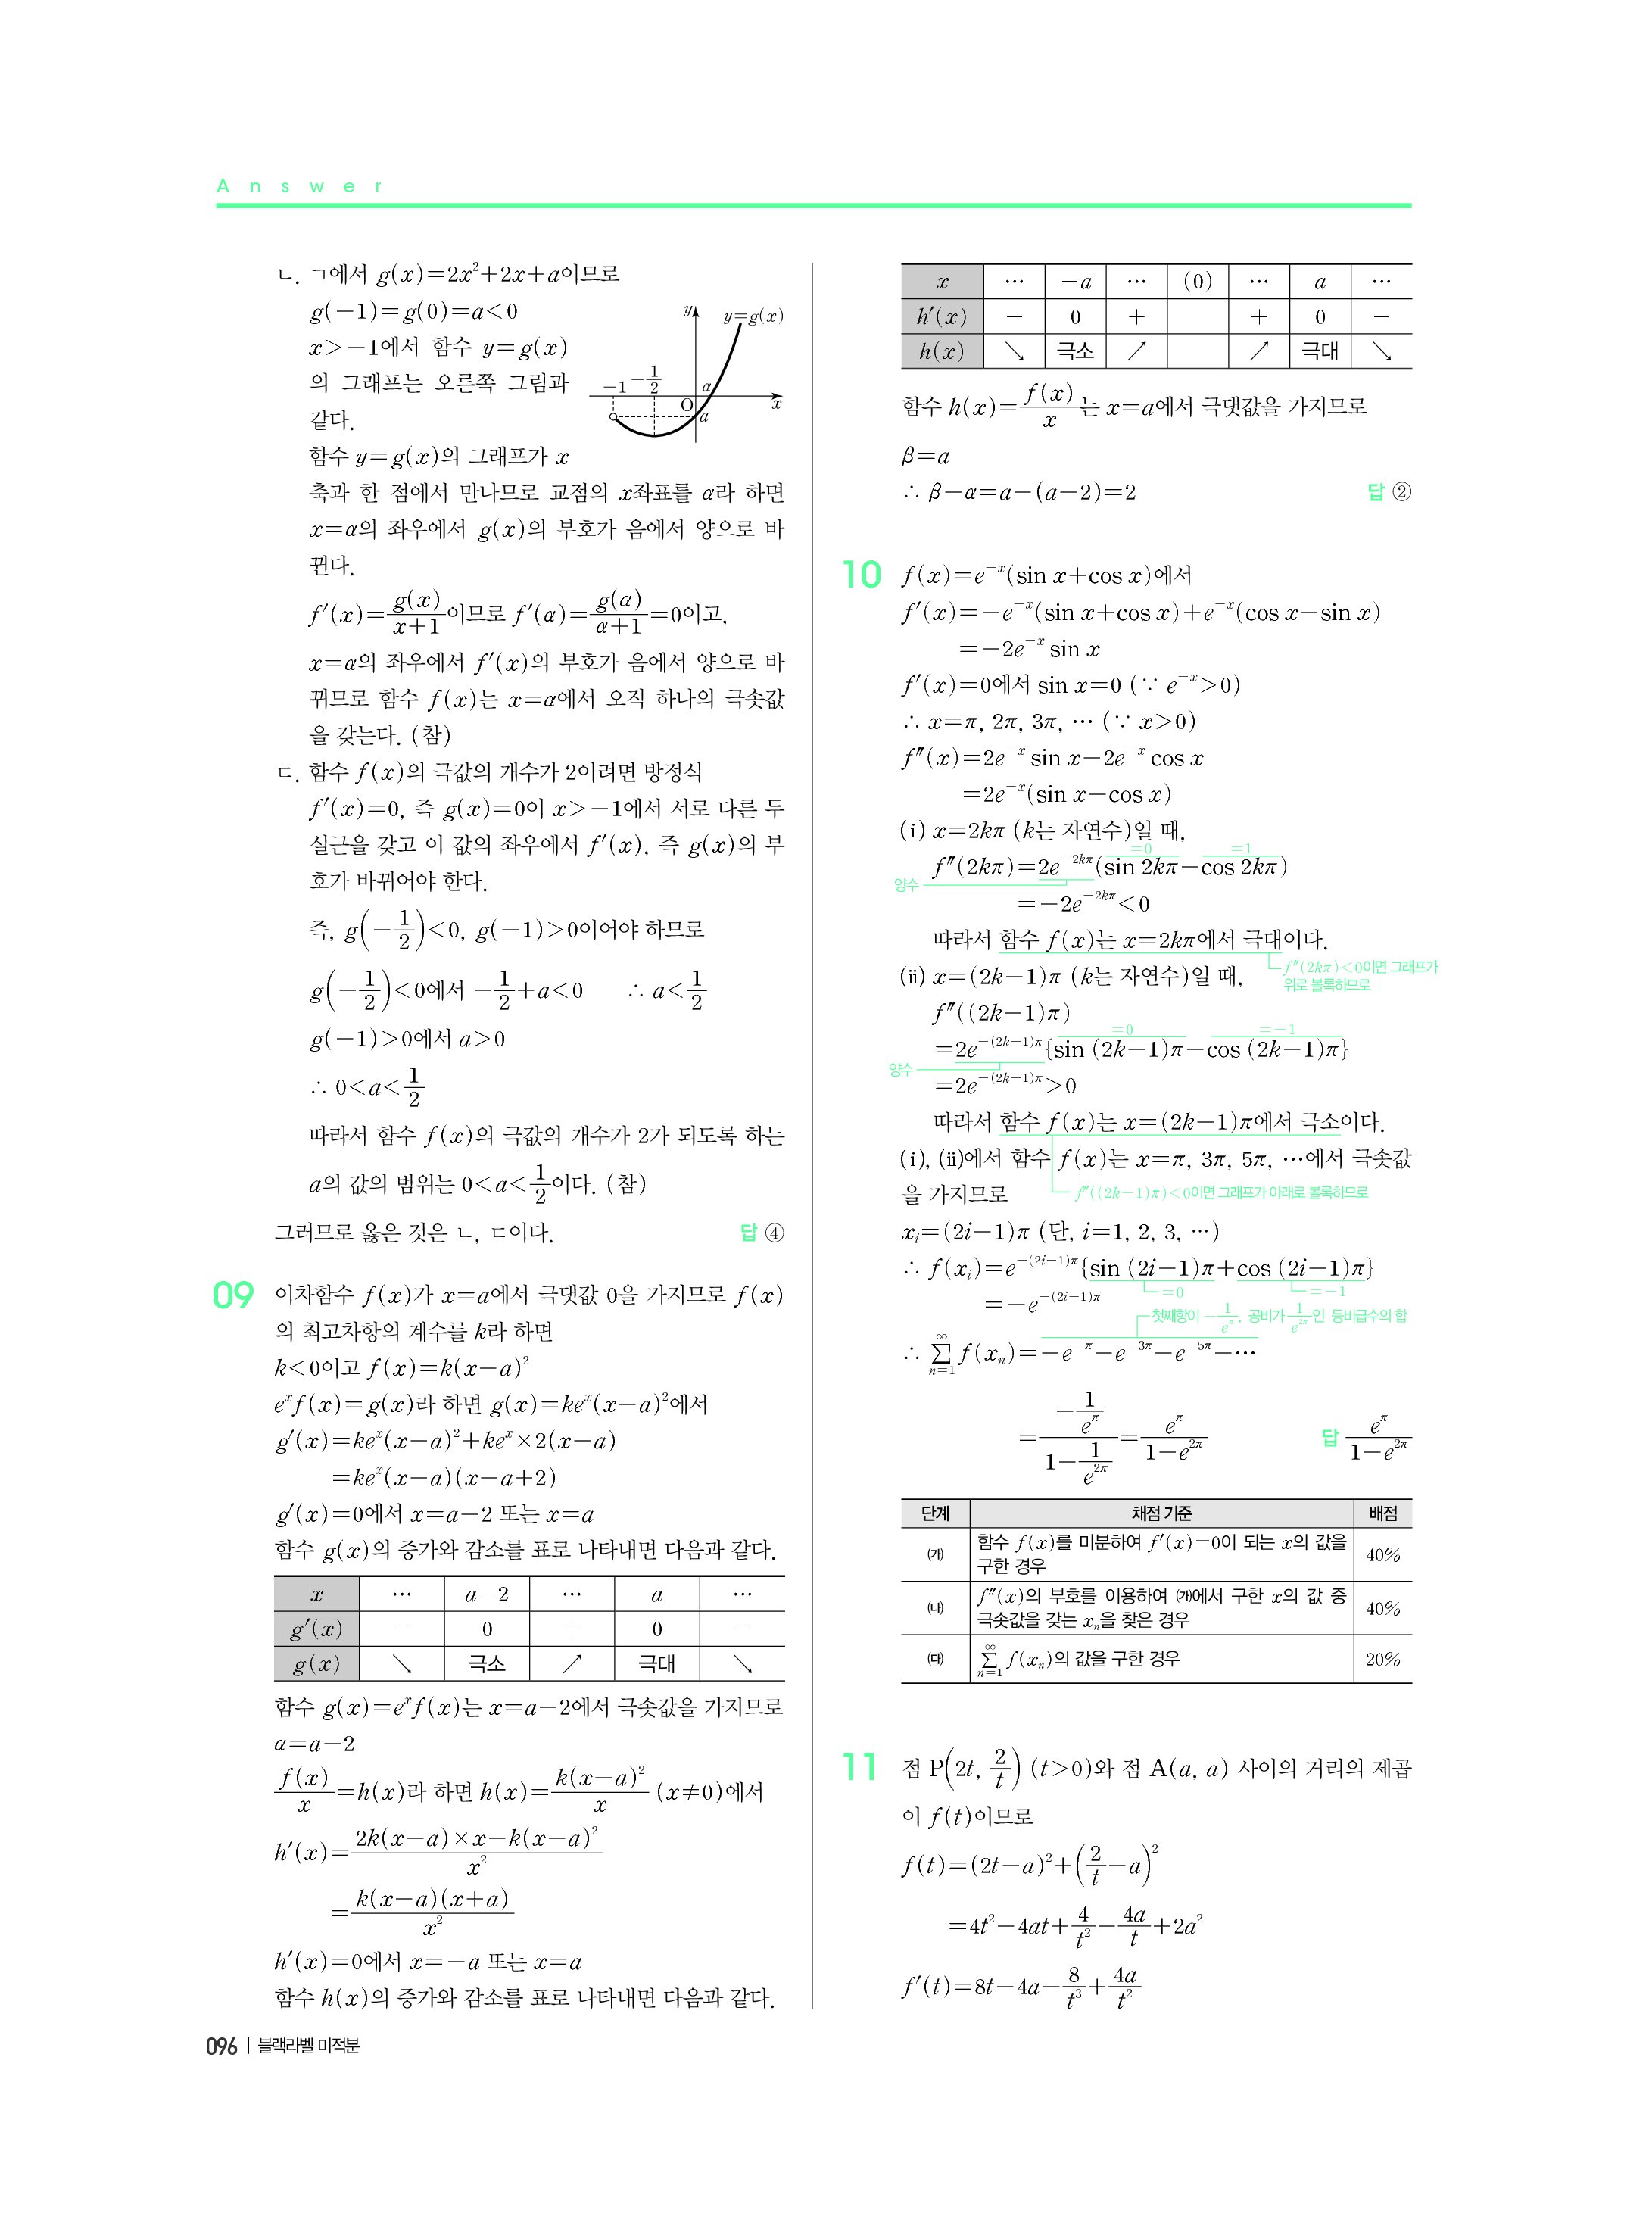 Answer
ㄴ. ㄱ에서 g(x)=2x²+2x+a이므로
g(-1)=g(0)=a<0
x>-1에서 함수 y=g(x)
의 그래프는 오른쪽 그림과
같다.
함수 y=g(x)의 그래프가 x
y
y=g(x)
-1
-1/2
α
O
x
a
축과 한 점에서 만나므로 교점의 x좌표를 α라 하면
x=α의 좌우에서 g(x)의 부호가 음에서 양으로 바
뀐다.
f′(x)=g(x)/(x+1)이므로 f′(α)=g(α)/(α+1)=0이고,
x=α의 좌우에서 f′(x)의 부호가 음에서 양으로 바
뀌므로 함수 f(x)는 x=α에서 오직 하나의 극솟값
을 갖는다. (참)
ㄷ. 함수 f(x)의 극값의 개수가 2이려면 방정식
f′(x)=0, 즉 g(x)=0이 x>-1에서 서로 다른 두
실근을 갖고 이 값의 좌우에서 f′(x), 즉 g(x)의 부
호가 바뀌어야 한다.
즉, g(-1/2)<0, g(-1)>0이어야 하므로
g(-1/2)<0에서 -1/2+a<0 ∴ a<1/2
g(-1)>0에서 a>0
∴ 0<a<1/2
따라서 함수 f(x)의 극값의 개수가 2가 되도록 하는
a의 값의 범위는 0<a<1/2이다. (참)
그러므로 옳은 것은 ㄴ, ㄷ이다. 답 ④
09 이차함수 f(x)가 x=a에서 극댓값 0을 가지므로 f(x)
의 최고차항의 계수를 k라 하면
k<0이고 f(x)=k(x-a)²
eˣf(x)=g(x)라 하면 g(x)=keˣ(x-a)²에서
g′(x)=keˣ(x-a)²+keˣ×2(x-a)
=keˣ(x-a)(x-a+2)
g′(x)=0에서 x=a-2 또는 x=a
함수 g(x)의 증가와 감소를 표로 나타내면 다음과 같다.
x … a-2 … a …
g′(x) - 0 + 0 -
g(x) ↘ 극소 ↗ 극대 ↘
함수 g(x)=eˣf(x)는 x=a-2에서 극솟값을 가지므로
α=a-2
f(x)/x=h(x)라 하면 h(x)=k(x-a)²/x (x≠0)에서
h′(x)={2k(x-a)×x-k(x-a)²}/x²
=k(x-a)(x+a)/x²
h′(x)=0에서 x=-a 또는 x=a
함수 h(x)의 증가와 감소를 표로 나타내면 다음과 같다.
x … -a … (0) … a …
h′(x) - 0 + + 0 -
h(x) ↘ 극소 ↗ ↗ 극대 ↘
함수 h(x)=f(x)/x는 x=a에서 극댓값을 가지므로
β=a
∴ β-α=a-(a-2)=2 답 ②
10 f(x)=e⁻ˣ(sin x+cos x)에서
f′(x)=-e⁻ˣ(sin x+cos x)+e⁻ˣ(cos x-sin x)
=-2e⁻ˣ sin x
f′(x)=0에서 sin x=0 (∵ e⁻ˣ>0)
∴ x=π, 2π, 3π, … (∵ x>0)
f″(x)=2e⁻ˣ sin x-2e⁻ˣ cos x
=2e⁻ˣ(sin x-cos x)
(ⅰ) x=2kπ (k는 자연수)일 때,
=0 =1
f″(2kπ)=2e^(-2kπ)(sin 2kπ-cos 2kπ)
양수
=-2e^(-2kπ)<0
따라서 함수 f(x)는 x=2kπ에서 극대이다.
f″(2kπ)<0이면 그래프가
위로 볼록하므로
(ⅱ) x=(2k-1)π (k는 자연수)일 때,
f″((2k-1)π)
=0 =-1
=2e^(-(2k-1)π){sin (2k-1)π-cos (2k-1)π}
양수
=2e^(-(2k-1)π)>0
따라서 함수 f(x)는 x=(2k-1)π에서 극소이다.
(ⅰ), (ⅱ)에서 함수 f(x)는 x=π, 3π, 5π, …에서 극솟값
을 가지므로
f″((2k-1)π)<0이면 그래프가 아래로 볼록하므로
xᵢ=(2i-1)π (단, i=1, 2, 3, …)
∴ f(xᵢ)=e^(-(2i-1)π){sin (2i-1)π+cos (2i-1)π}
=0 =-1
=-e^(-(2i-1)π)
첫째항이 -1/e^π, 공비가 1/e^(2π)인 등비급수의 합
∴ ∑(n=1→∞) f(xₙ)=-e^(-π)-e^(-3π)-e^(-5π)-…
=(-1/e^π)/(1-1/e^(2π))=e^π/(1-e^(2π)) 답 e^π/(1-e^(2π))
단계 채점 기준 배점
㈎ 함수 f(x)를 미분하여 f′(x)=0이 되는 x의 값을
구한 경우 40%
㈏ f″(x)의 부호를 이용하여 ㈎에서 구한 x의 값 중
극솟값을 갖는 xₙ을 찾은 경우 40%
㈐ ∑(n=1→∞) f(xₙ)의 값을 구한 경우 20%
11 점 P(2t, 2/t) (t>0)와 점 A(a, a) 사이의 거리의 제곱
이 f(t)이므로
f(t)=(2t-a)²+(2/t-a)²
=4t²-4at+4/t²-4a/t+2a²
f′(t)=8t-4a-8/t³+4a/t²
096 | 블랙라벨 미적분